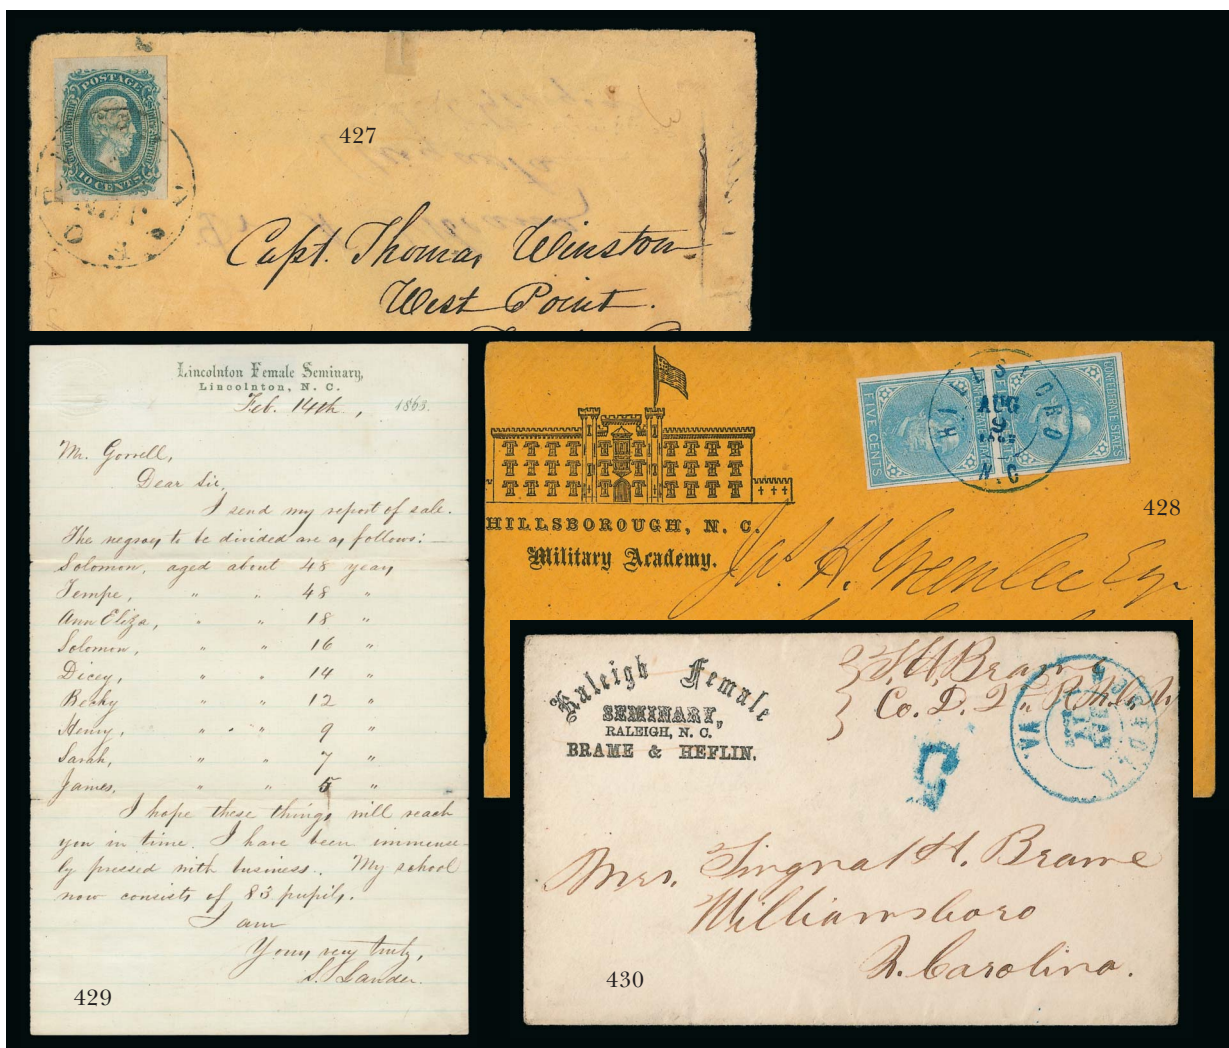 POSTAGE
10 CENTS
427
Capt. Thomas Winston
West Point.
Lincolnton Female Seminary,
Lincolnton, N. C.
Feb. 14th, 1863.
Mr. Gorrell,
Dear Sir,
I send my report of sale.
The negroes to be divided are as follows:—
Solomon, aged about 48 years
Tempe, " " 48 "
Ann Eliza, " " 18 "
Solomon, " " 16 "
Dicey, " " 14 "
Becky " " 12 "
Henry, " " 9 "
Sarah, " " 7 "
James, " " 5 "
I hope these things will reach
you in time. I have been immense-
ly pressed with business. My school
now consists of 83 pupils.
I am
Yours very truly,
S. Lander.
429
FIVE CENTS
CONFEDERATE STATES
HILLSBORO
AUG
9
N.C
428
HILLSBOROUGH, N. C.
Military Academy.
Jas. H. Greenlee Esq.
Raleigh Female
SEMINARY,
RALEIGH, N. C.
BRAME & HEFLIN.
T. H. Brame
Co. D.
VA
5
Mrs. Tingnal H. Brame
Williamsboro
N. Carolina.
430